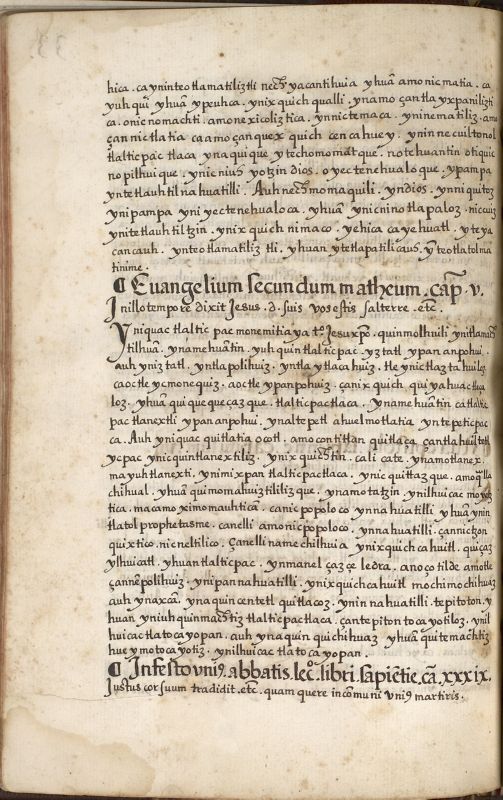 hica. ca yninteotlamatiliztli nech yacantihuia yhuã amo nicmatia. ca
yuh qui yhuã ypeuhca. ynixquich qualli. ynamo çan tla yxpaniliztī
ca. onic nomachti. amo nexicoliztica. ynnictemaca. yninematiliz. amo
çan nictlatia ca amo çanquexquich cenca huey. ynin necuiltonol
tlalticpac tlaca yna quique ytechomomatque. notehuantin otiquic
nopilhuique. ynic nius yotzin dios. oyectenehualoque. ypampa
yntetlauhtilnahuatilli. Auh nechmomaquili. yn dios. ynniquitoz
ynipampa yni yectenehualoca. yhuã ynicnino tlapaloz. niccuiz
ynitetlauhtiltzin. ynixquich nimaco. yehica ca yehuatl. yteya
cancauh. ynteotlamatiliztli. yhuan ytetlapatilicauh ỹ teotlatolma
tinime.
¶ Euangelium secundum matheum. cap. v.
In illo tempore dixit Jesus. d. suis vos estis sal terre. etc.
Yniquac tlalticpac monemitiaya to. Jesu xpõ. quinmolhuili ynitlamach
tilhuã. ynamehuãtin. yuhquin tlalticpac. yztatl ypan anpohui.
auh yniztatl. yntla polihuiz. yntla ytlacahuiz. tle ynic tlaztahuiloz
caoctle ycmonequiz. aoctle ypan pohuiz. çan ixquich, quiyahuac tlaça
loz. yhuã quiquequeçazque. tlalticpactlaca. ynamehuãtin ca tlaltic
pac tlanextli ypan anpohui. yn altepetl ahuel motlatia yntepeticpac
ca. Auh yniquac quitlatia ocotl. amo contitlan quitlaça, çan tlahuiltetl
ycpac ynic quintlanextiliz. ynixquichtin. cali cate. ynamotlanex.
ma yuh tlanexti. ynimixpan tlalticpactlaca. ynic quittazque. amoqualla
chihual. yhuã quimomahuiztililizque. ynamotatzin. ynilhuicac moyetz
tica. macamo ximomauhticã. canic popoloco ynnahuatilli yhuã ynin
tlatol prophetasme. canelli amo nicpopoloco. ynnahuatilli. çannictzon
quixtico. nicneltilico. çanelli namechilhuia ynixquich cahuitl. quiçaz
ylhuicatl. yhuan tlalticpac. ynmanel çaz çe ledra. anoço tilde amotle
çannẽ polihuiz. ynipan nahuatilli. ynixquich cahuitl mochi mochihuaz
auh ynaxcã. ynaquin centetl quitlacoz. ynin nahuatilli. tepitoton, y
huan yniuh quinmachtiz tlalticpactlaca. çan tepiton tocayotiloz. ynil
huicac tlatocayopan. auh ynaquin quichihuaz yhuã quitemachtiz
huey motocayotiz. ynilhuicac tlatocayopan.
¶ In festo vni9 abbatis. lecᵒ. libri sapiẽtie. cã. xxxix.
Justus cor suum tradidit. etc. quam quere in cõmuni vni9 martiris.